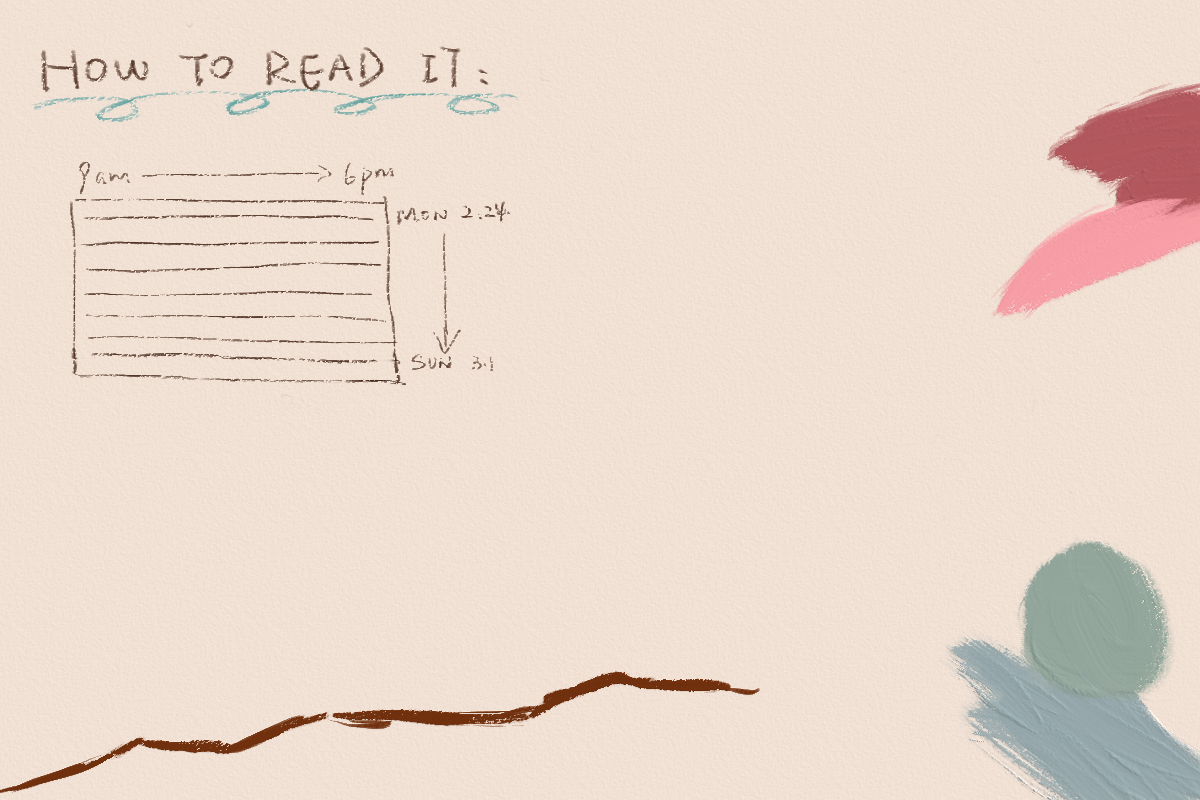 HOW TO READ IT:
9am → 6pm
MON 2.24
SUN 3.1